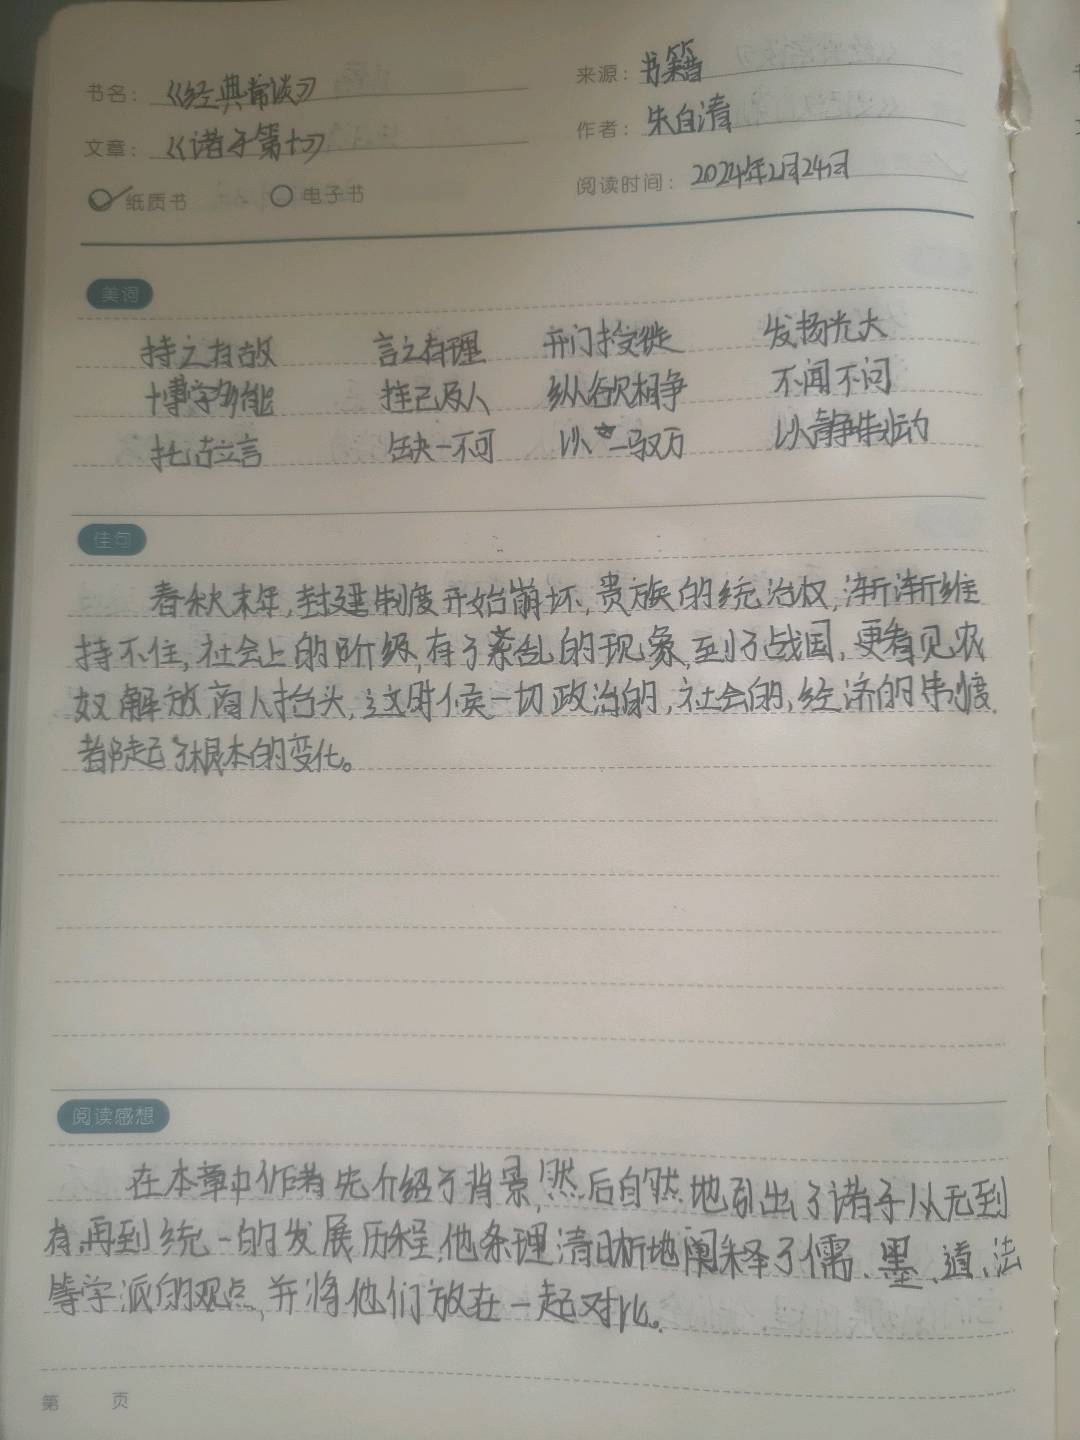 书名：《经典常谈》 来源：书籍
文章：《诸子第十》 作者：朱自清
纸质书 电子书 阅读时间：2024年2月24日
美词
持之有故 言之有理 开门授徒 发扬光大
博学多能 推己及人 纵欲相争 不闻不问
托古立言 缺一不可 以一驭万 以静制动
佳句
春秋末年,封建制度开始崩坏,贵族的统治权,渐渐维
持不住,社会上的阶级,有了紊乱的现象,到了战国,更看见农
奴解放,商人抬头,这时候一切政治的,社会的,经济的制度,
都起了根本的变化。
阅读感想
在本章中作者先介绍了背景,然后自然地引出了诸子从无到
有,再到统一的发展历程,他条理清晰地阐释了儒、墨、道、法
等学派的观点,并将他们放在一起对比。
第 页